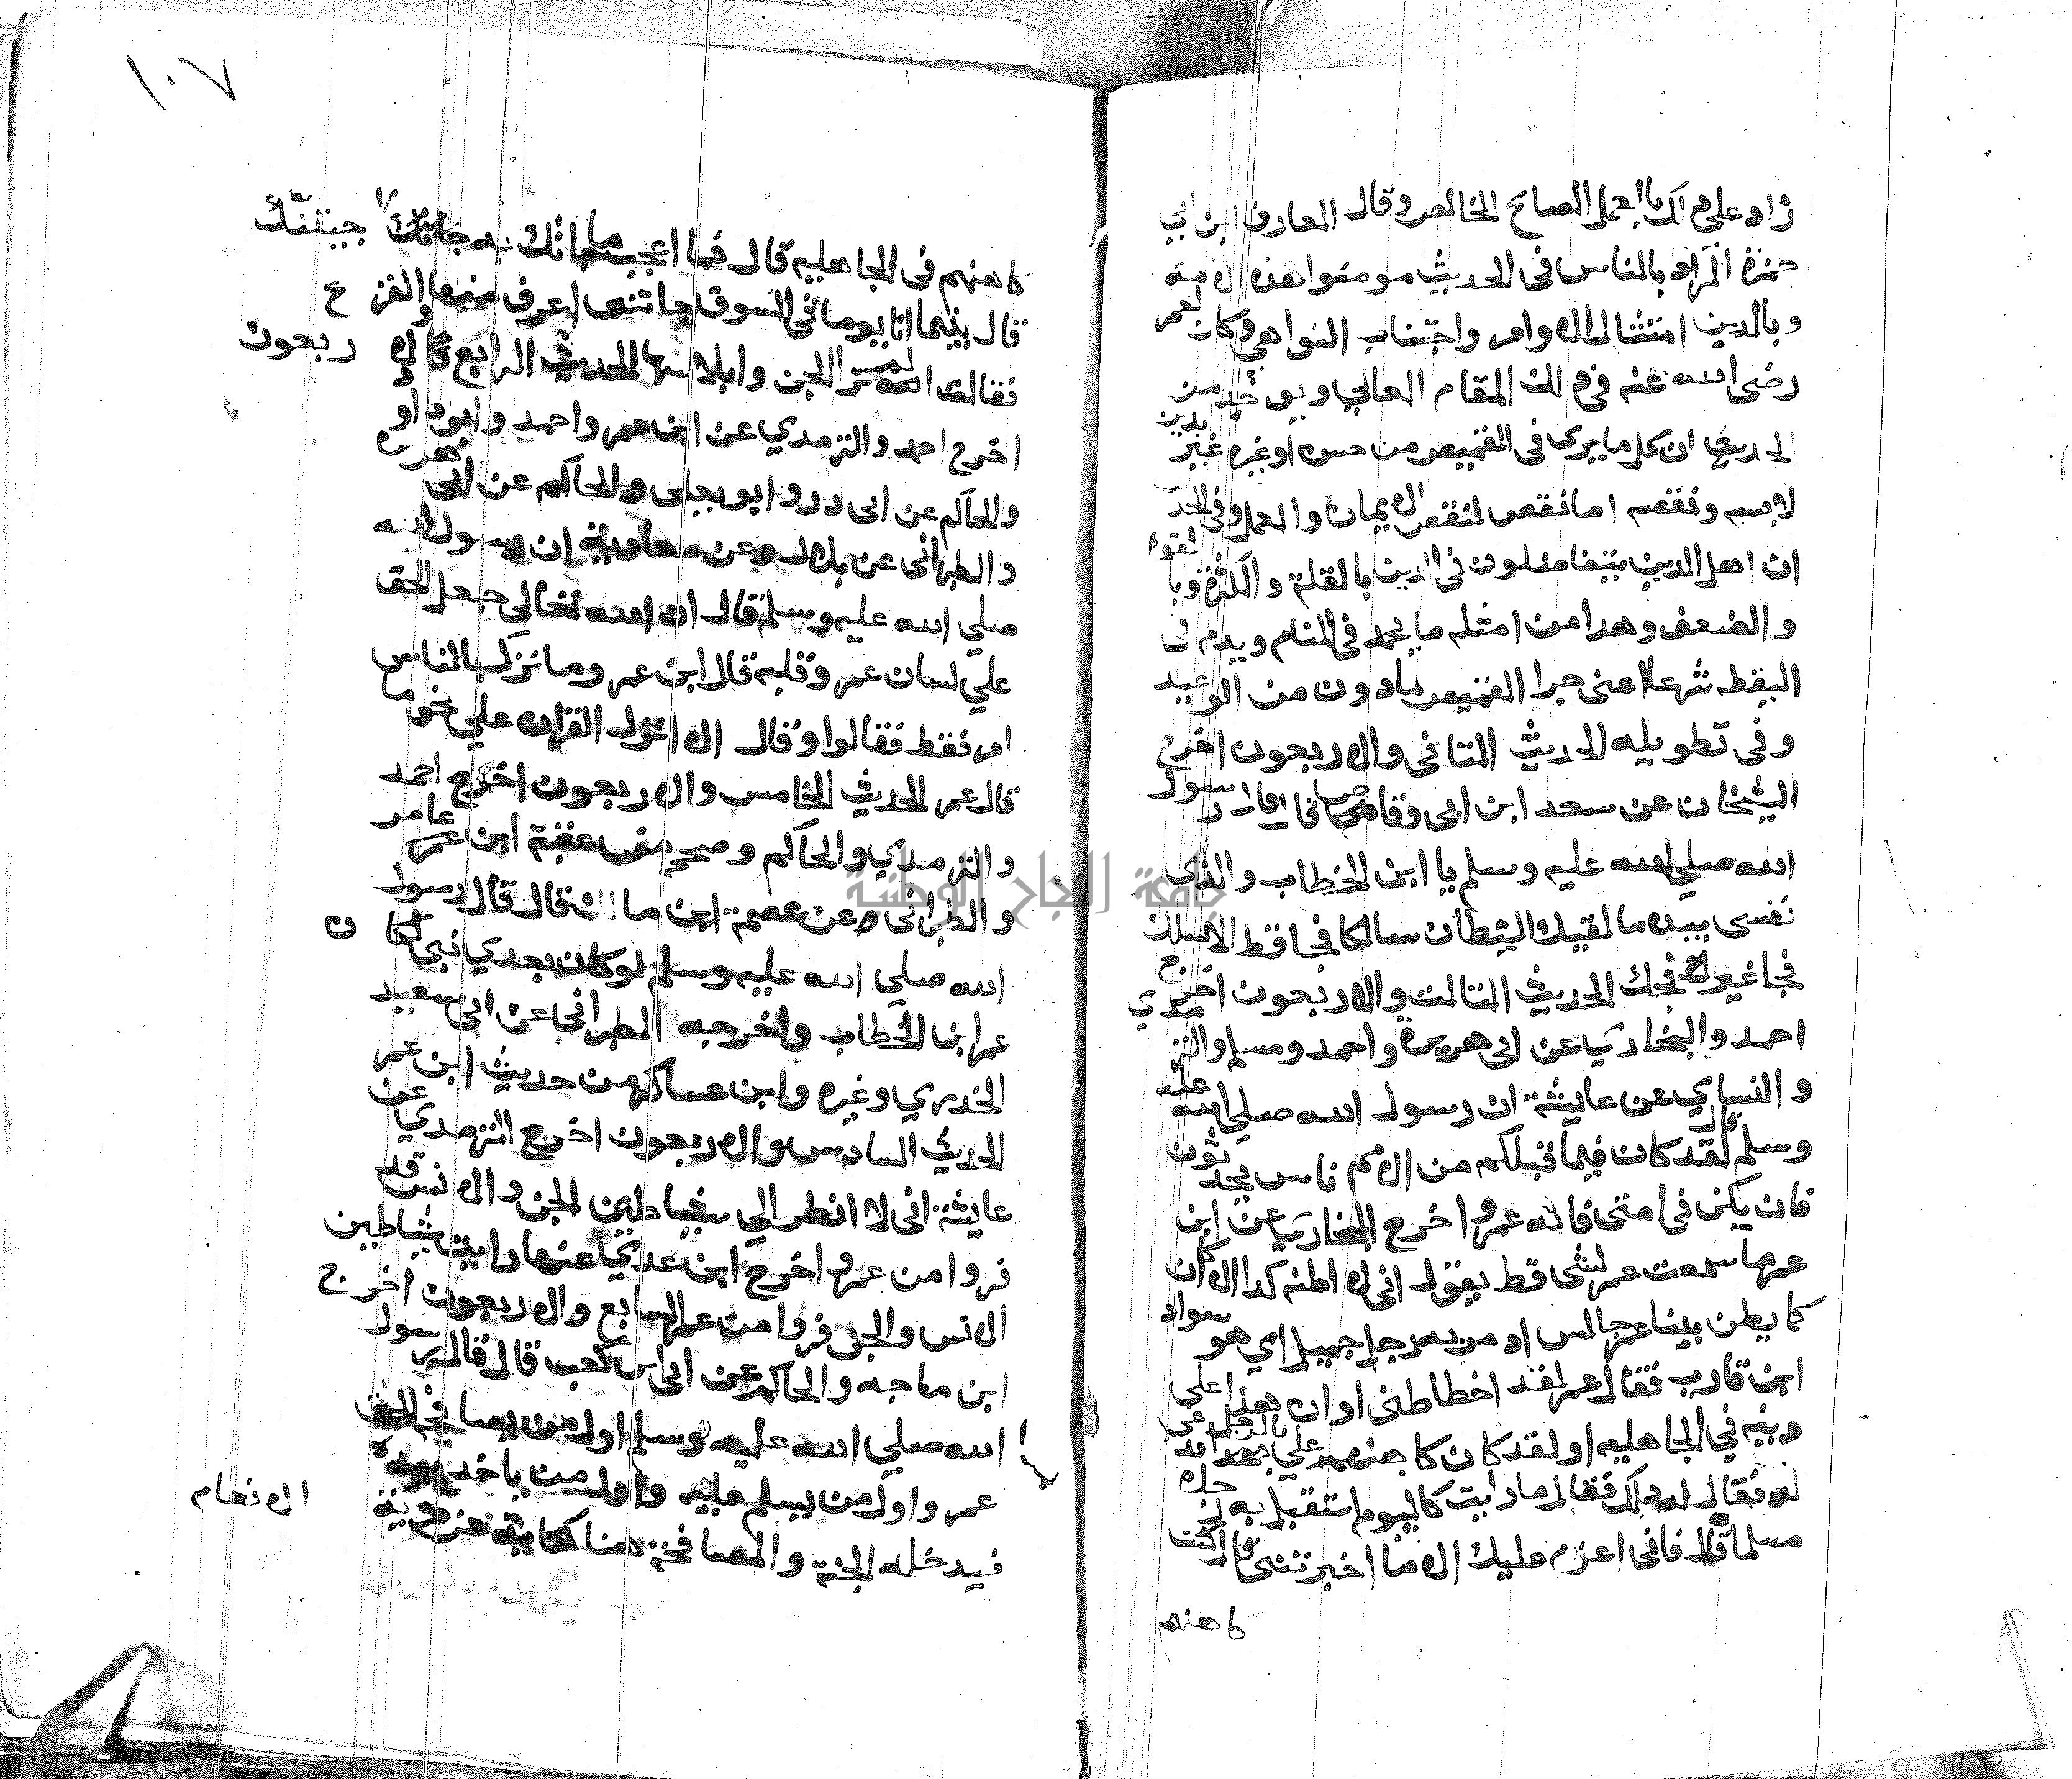 زاد على ذلك بالعمل الصالح الخالص وقال العارف ابن ابي
حمزة المراد بالناس في الحديث مومنوا هذه الامة
وبالدين امتثال الاوامر واجتناب النواهي وكان لعمر
رضى الله عنه في ذلك المقام العالي ويوخذ من
الحديث ان كل ما يرى في القميص من حسن او غيره غبير بدين
لابسه ونقصه اما نقص لنقص الايمان والعمل وفي الحد
ان اهل الدين يتفاضلون في الدين بالقلة والكثرة وبالقوه
والضعف وهدا من امثلة ما يحمد في المنام ويدم في
اليقطه شرعا اعنى جرا القميص لما دون من الوعيد
وفي تطويله الحديث الثاني والاربعون اخرج
الشيخان عن سعد ابن ابى وقاص قال قال رسول
الله صلي الله عليه وسلم يا ابن الخطاب والذى
نفسى بيده ما لقيك الشيطان سالكا فجا قط الا سلك
فجا غير فجك الحديث الثالث والاربعون اخرج
احمد والبخاري عن ابى هريرة واحمد ومسلم والترمدي
والنساي عن عايشة ان رسول الله صلي الله عليه
وسلم قال لقد كان فيما قبلكم من الامم ناس يحدثون
فان يكن في امتى فانه عمر واخرج البخاري عن ابن
عمر ما سمعت عمر لشى قط يقول انى لا اظنه كدا الا كان
كما يظن بينا عمر جالس اد مر به رجل جميل اي هو سواد
ابن قارب فقال عمر لقد اخطا طنى او ان هذا على
دينه في الجاهليه او لقد كان كاهنهم علي بالرجل فدعى
له فقال له ذلك فقال ما رايت كاليوم استقبل به رجل
مسلما قال فانى اعزم عليك الا ما اخبرتنى قال كنت
كاهنهم
١٠٧
كاهنهم في الجاهليه قال فما اعجب ما جاتك به جنيتك
قال بينما انا يوما في السوق جاتنى اعرف منها الفزع
فقالت الم تر الجن وابلاسها الحديث الرابع والاربعون
اخرج احمد والترمدي عن ابن عمر واحمد وابو داود
والحاكم عن ابى در وابو يعلى والحاكم عن ابى هريره
والطبرانى عن بلال وعن معاوية ان رسول الله
صلي الله عليه وسلم قال ان الله تعالى جعل الحق
علي لسان عمر وقلبه قال ابن عمر وما نزل بالناس
امر فقط فقالوا وقال الا انزل القران علي نحو ما
قال عمر الحديث الخامس والاربعون اخرج احمد
والترمدي والحاكم وصححه عن عقبة ابن عامر
والطبرانى عن عصمة ابن مالك قال قال رسول
الله صلي الله عليه وسلم لو كان بعدي نبى لكان
عمر ابن الخطاب واخرجه الطبرانى عن ابى سعيد
الخدري وغيره وابن عساكر من حديث ابن عمر
الحديث السادس والاربعون اخرج الترمدي عن
عايشة انى لا انظر الي شياطين الجن والانس قد
فروا من عمر واخرج ابن عدي عنها رايت شياطين
الانس والجن فروا من عمر السابع والاربعون اخرج
ابن ماجه والحاكم عن ابى ابن كعب قال قال رسول
الله صلي الله عليه وسلم اول من يصافح الحق
عمر واول من يسلم عليه واول من ياخد بيده
فيدخله الجنة والمصافحة هنا كناية عن مزية
الانعام
جامعة النجاح الوطنية